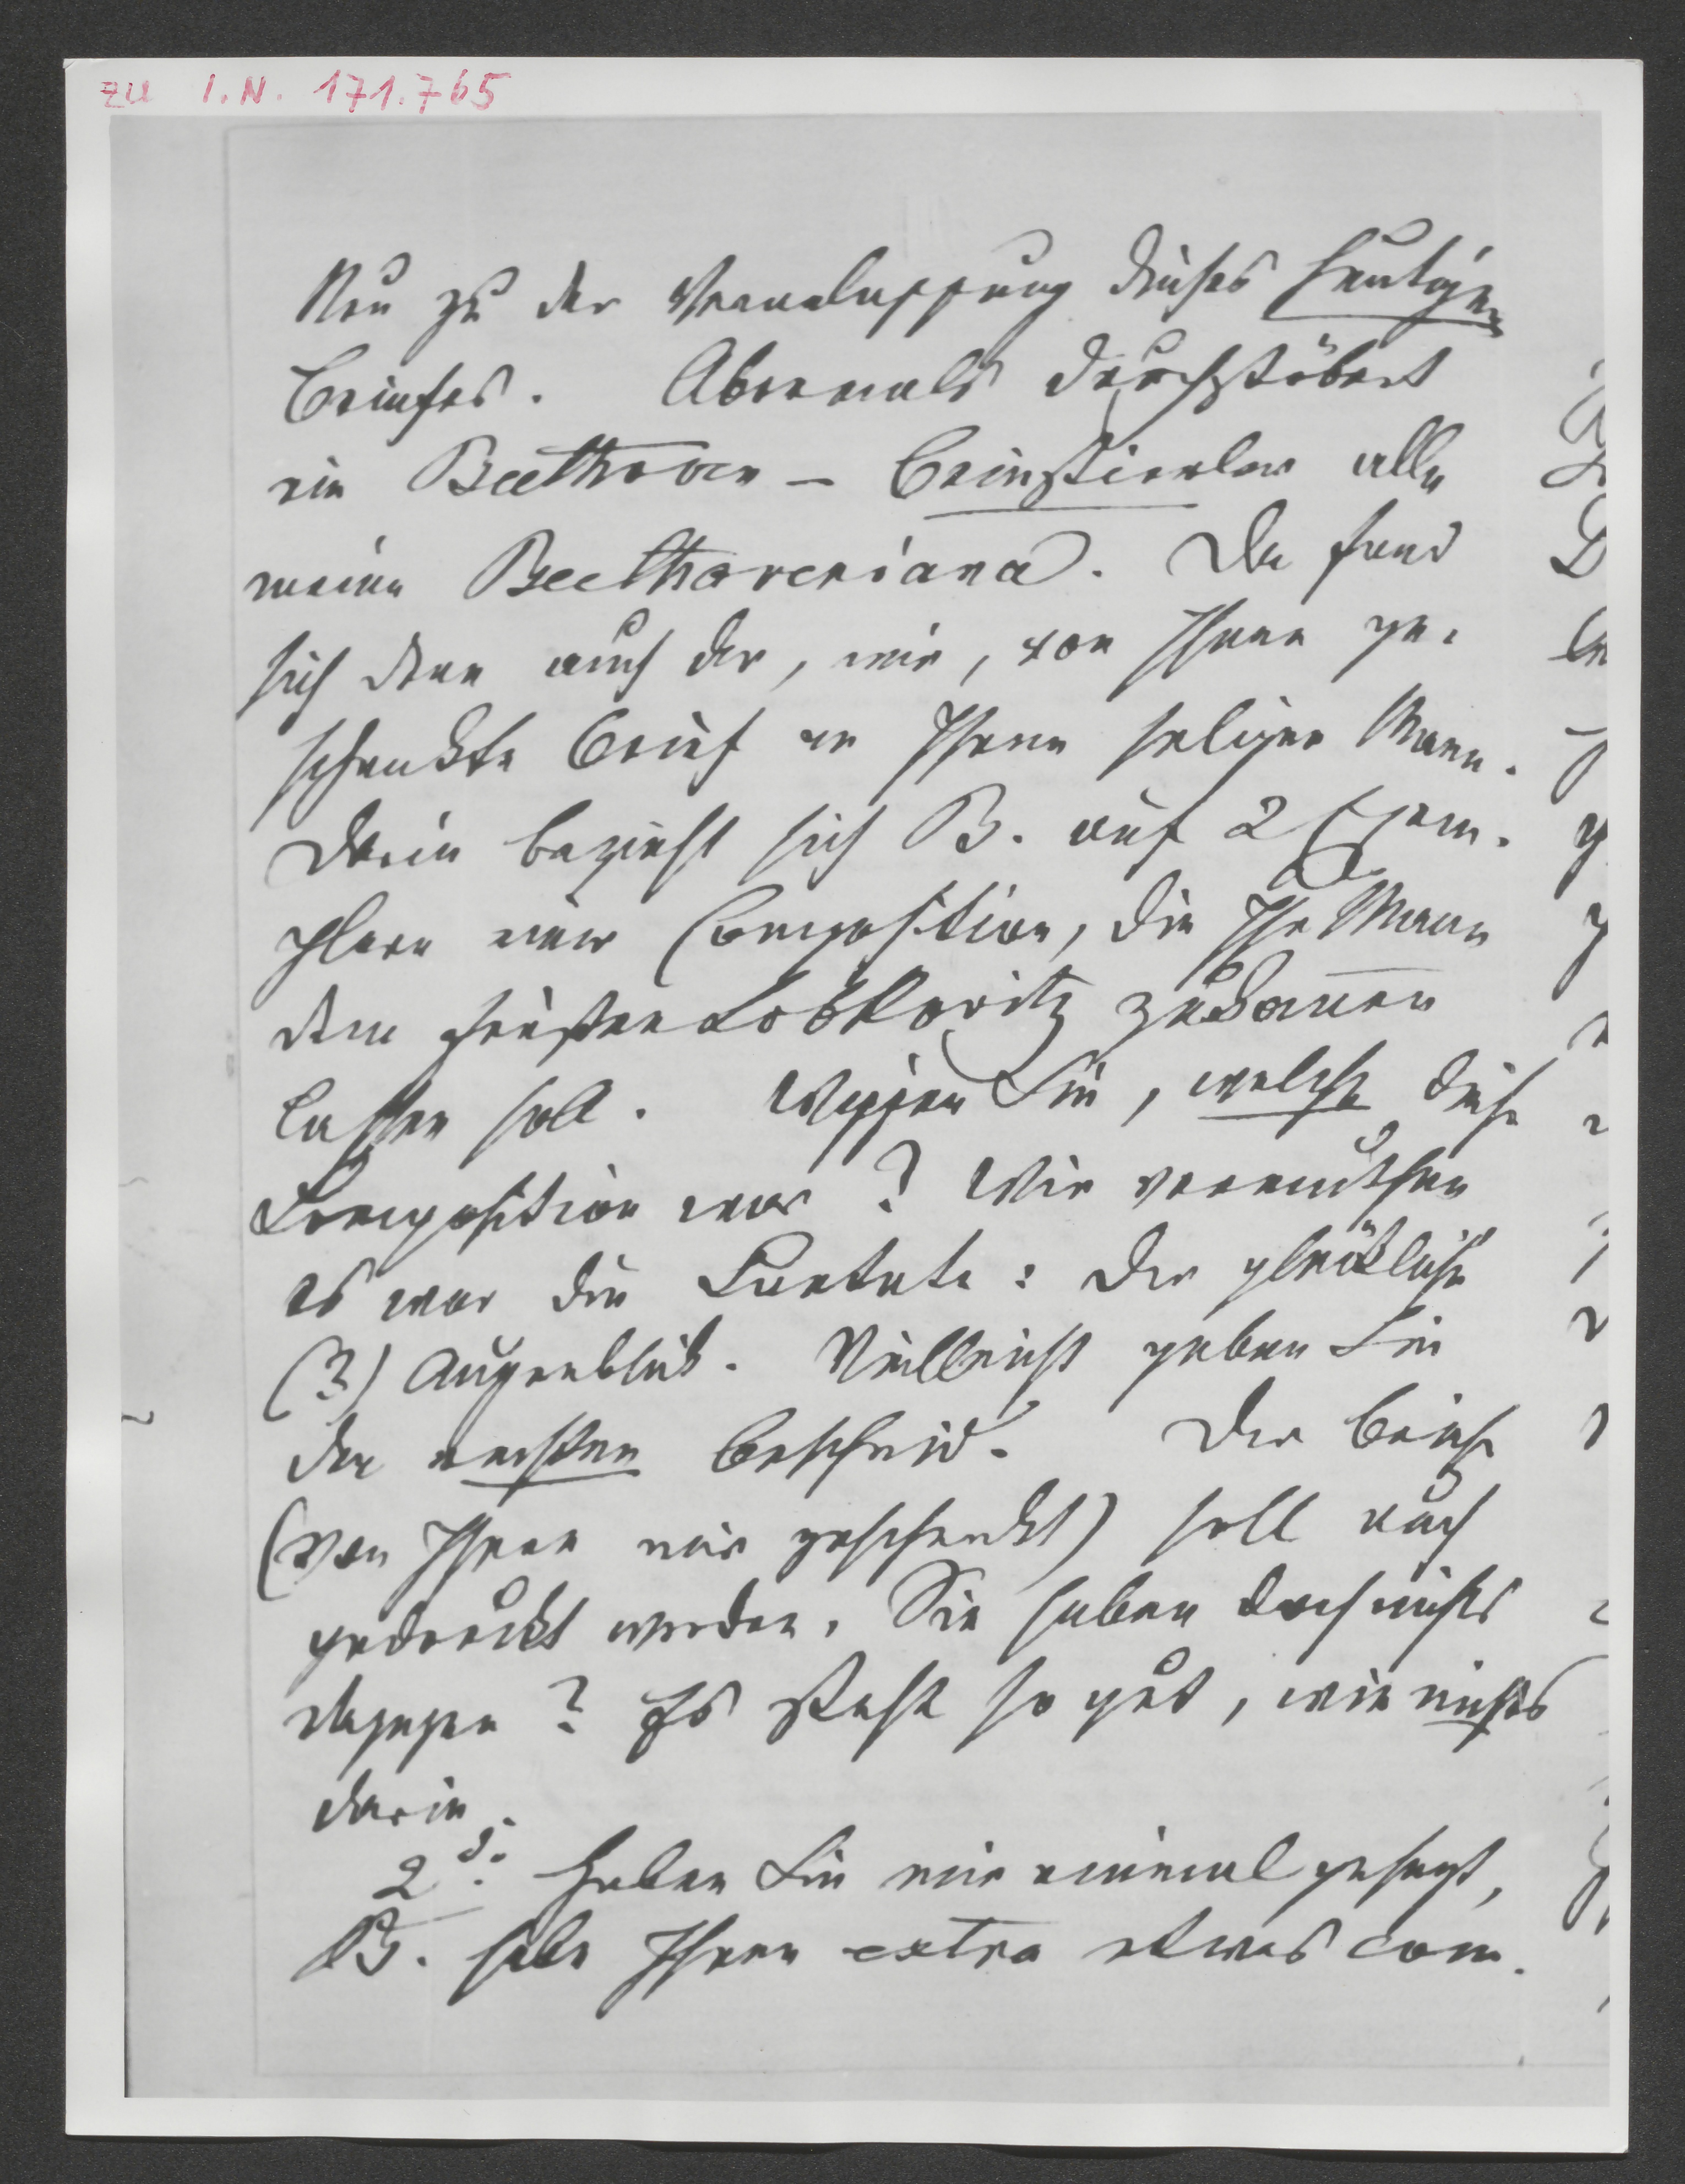 zu I.N. 171.765
Nun zu der Veranlassung dieses heutigen
Briefes. Abermals durchstöbert
ein Beethoven - Briefstieler alle
meine Beethoveniana. Da fand
sich denn auch der, mir, von Ihnen ge-
schenkte Brief an Ihren seligen Mann.
Darin bezieht sich B. auf 2 Exem-
plare einer Composition, die Ihr Mann
dem Fürsten Lobkowitz zukom̅en
lassen soll. Wissen Sie, welche diese
Composition war? Wir vermuthen
es war die Cantate: Der glückliche
(3) Augenblick. Vielleicht geben Sie
den ersten Bescheid. Der Brief
(von Ihnen mir geschenkt) soll auch
gedruckt werden. Sie haben doch nichts
dagegen? Es steht so gut, wie nichts
darin.
2d: Haben Sie mir einmal gesagt,
B. habe Ihnen extra etwas com-